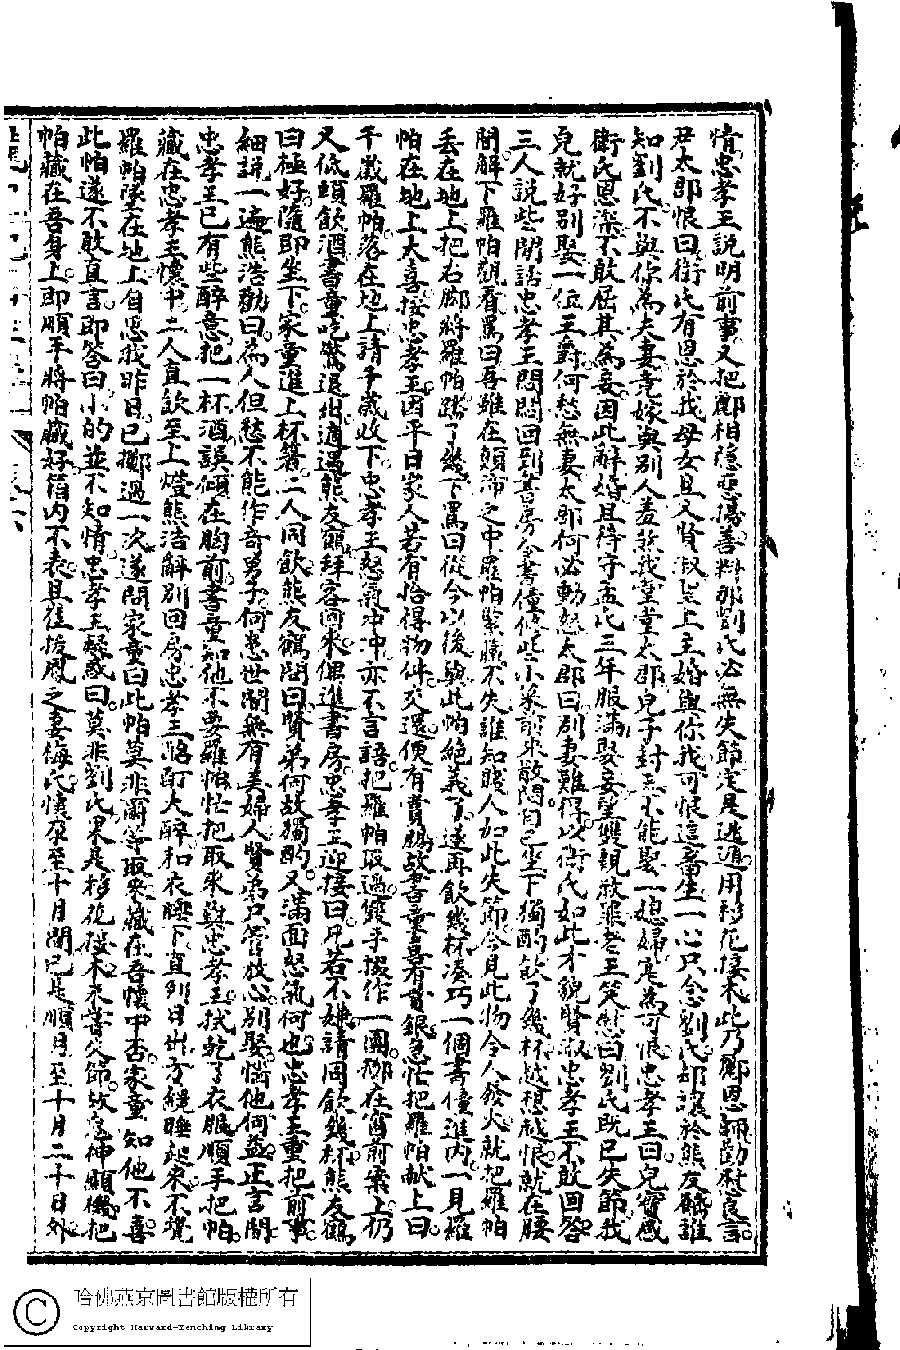 情忠孝王說明前事又把酈相隱惡揚善料那劉氏必無失節定是逃遁用移花接木此乃酈恩師勸慰良言
君太郡恨曰衛氏有恩於我母女且又賢淑皇上主婚與你我可恨這畜生一心只念劉氏却讓於熊友鶴誰
知劉氏不與你為夫妻竟嫁與別人羞我堂堂太郡兒子封王不能娶一媳婦寔為可恨忠孝王曰兒實感
衛氏恩深不敢屈其為妾因此辭婚且待守孟氏三年服滿娶妾望雙親赦罪老王笑曰劉氏既已失節我
兒就好別娶一位王爵何愁無妻太郡何必動怒太郡曰別妻難得以衛氏如此才貌賢淑忠孝王不敢回答
三人說些閒話忠孝王悶悶回到書房令書僮傋些小菜前來散悶自己坐下獨酌飲了幾杯越想越恨就在腰
間解下羅帕觀看罵曰吾雖在顛沛之中羅帕緊藏不失誰知賤人如此失節今見此物令人發火就把羅帕
丟在地上把右脚將羅帕踏了幾下罵曰從今以後與此帕絕義了遂再飲幾杯湊巧一個書僮進內一見羅
帕在地上大喜接忠孝王因平日家人若有恰得物件交還便有賞賜故書童喜有賞銀急忙把羅帕献上曰
千歲羅帕落在地上請千歲收下忠孝王怒氣冲冲亦不言語把羅帕取過雙手掇作一團擲在窗前案上仍
又低頭飲酒書童吃驚退出適遇熊友鶴拜客回來偶進書房忠孝王迎接曰兄若不嫌請同飲幾杯熊友鶴
曰極好隨即坐下家童進上杯箸二人同飲熊友鶴問曰賢弟何故獨酌又滿面怒氣何也忠孝王重把前事
細說一遍熊浩勸曰為人但愁不能作奇男子何患世間無有美婦人賢弟只管放心別娶惱他何益正言間
忠孝王已有些醉意把一杯酒誤傾在胸前書童知他不要羅帕忙把取來與忠孝王拭乾了衣服順手把帕
藏在忠孝王懷中二人直飲至上燈熊浩辭別回房忠孝王酩酊大醉和衣睡下直到日出方纔睡起來不覺
羅帕墜在地上自思我昨日已擲過一次遂問家童曰此帕莫非爾等取來藏在吾懷中否家童知他不喜
此帕遂不敢直言即答曰小的並不知情忠孝王疑惑曰莫非劉氏果是移花接木未曾失節故鬼神顯機把
帕藏在吾身上即順手將帕藏好箱內不表且住接鳳之妻梅氏懷孕至十月間已是順月至十月二十日外
哈佛燕京圖書館版權所有
Copyright Harvard-Yenching Library